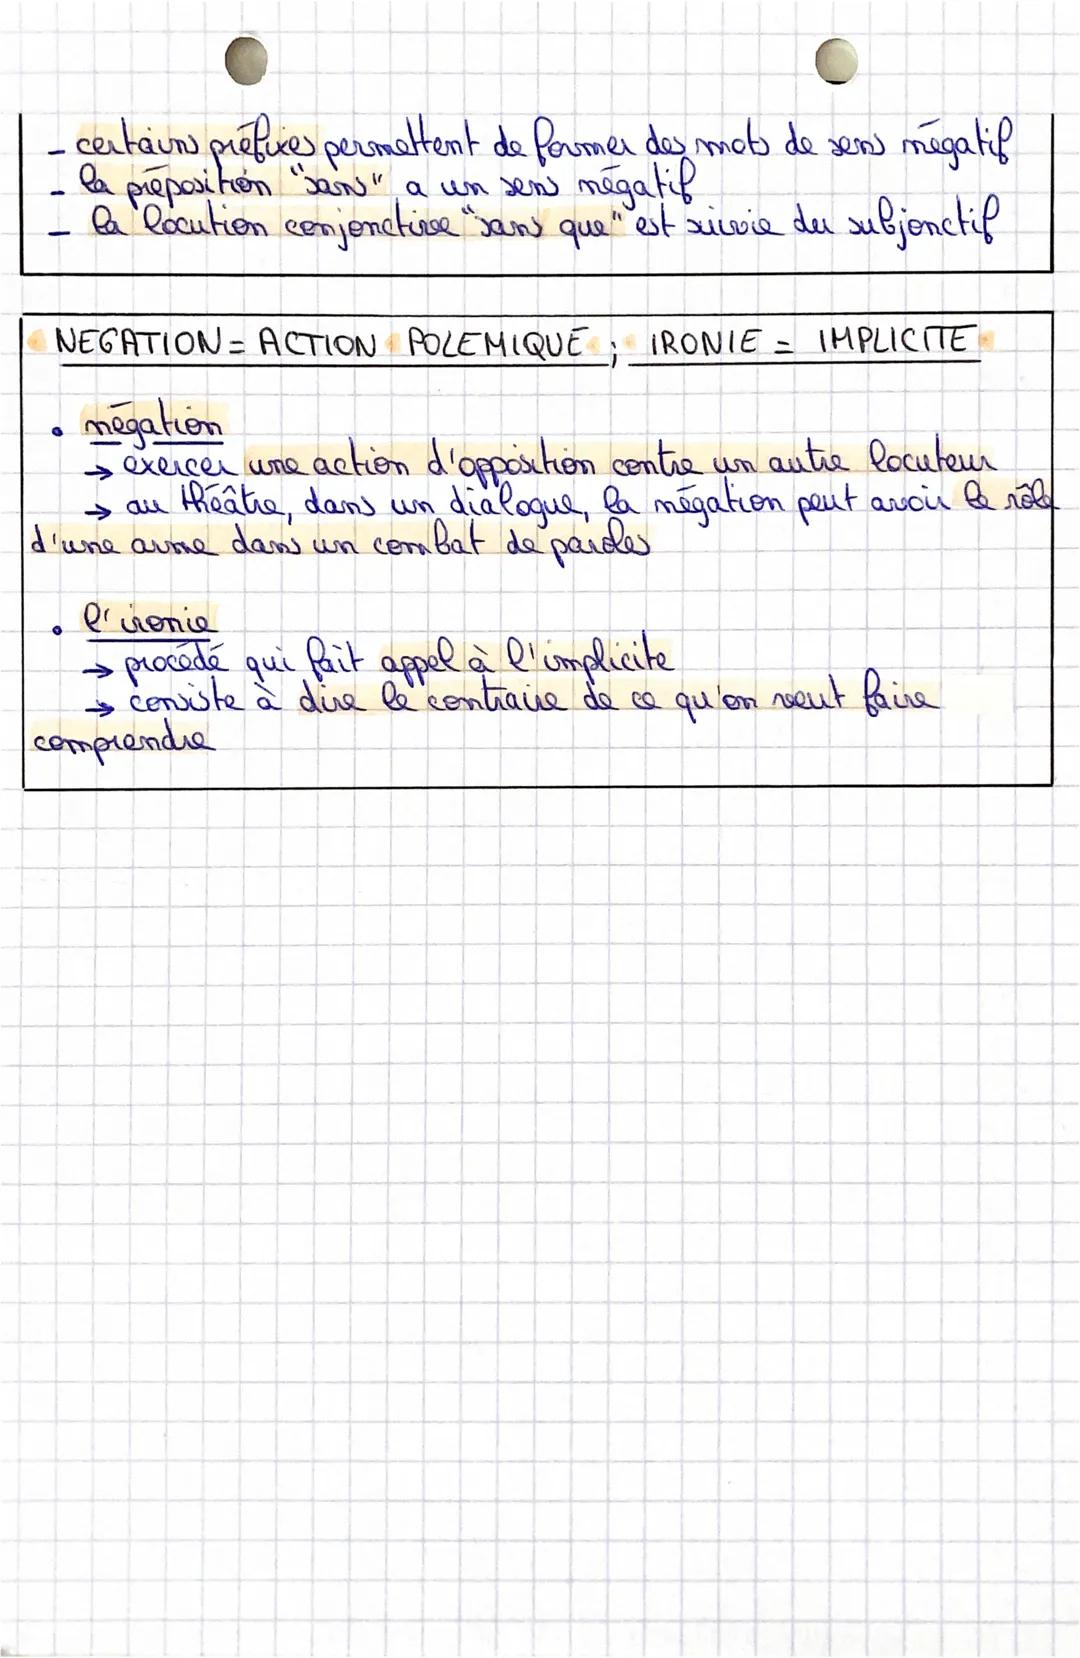 - certains préfixes permettent de former des mots de sens négatif
- la préposition "sans" a un sens négatif
- la locution conjonctive "sans que" est suivie du subjonctif
NEGATION = ACTION POLEMIQUE ; IRONIE = IMPLICITE
• négation
→ exercer une action d'opposition contre un autre locuteur
→ au théâtre, dans un dialogue, la négation peut avoir le rôle
d'une arme dans un combat de paroles
• l'ironie
→ procédé qui fait appel à l'implicite
→ consiste à dire le contraire de ce qu'on veut faire
comprendre